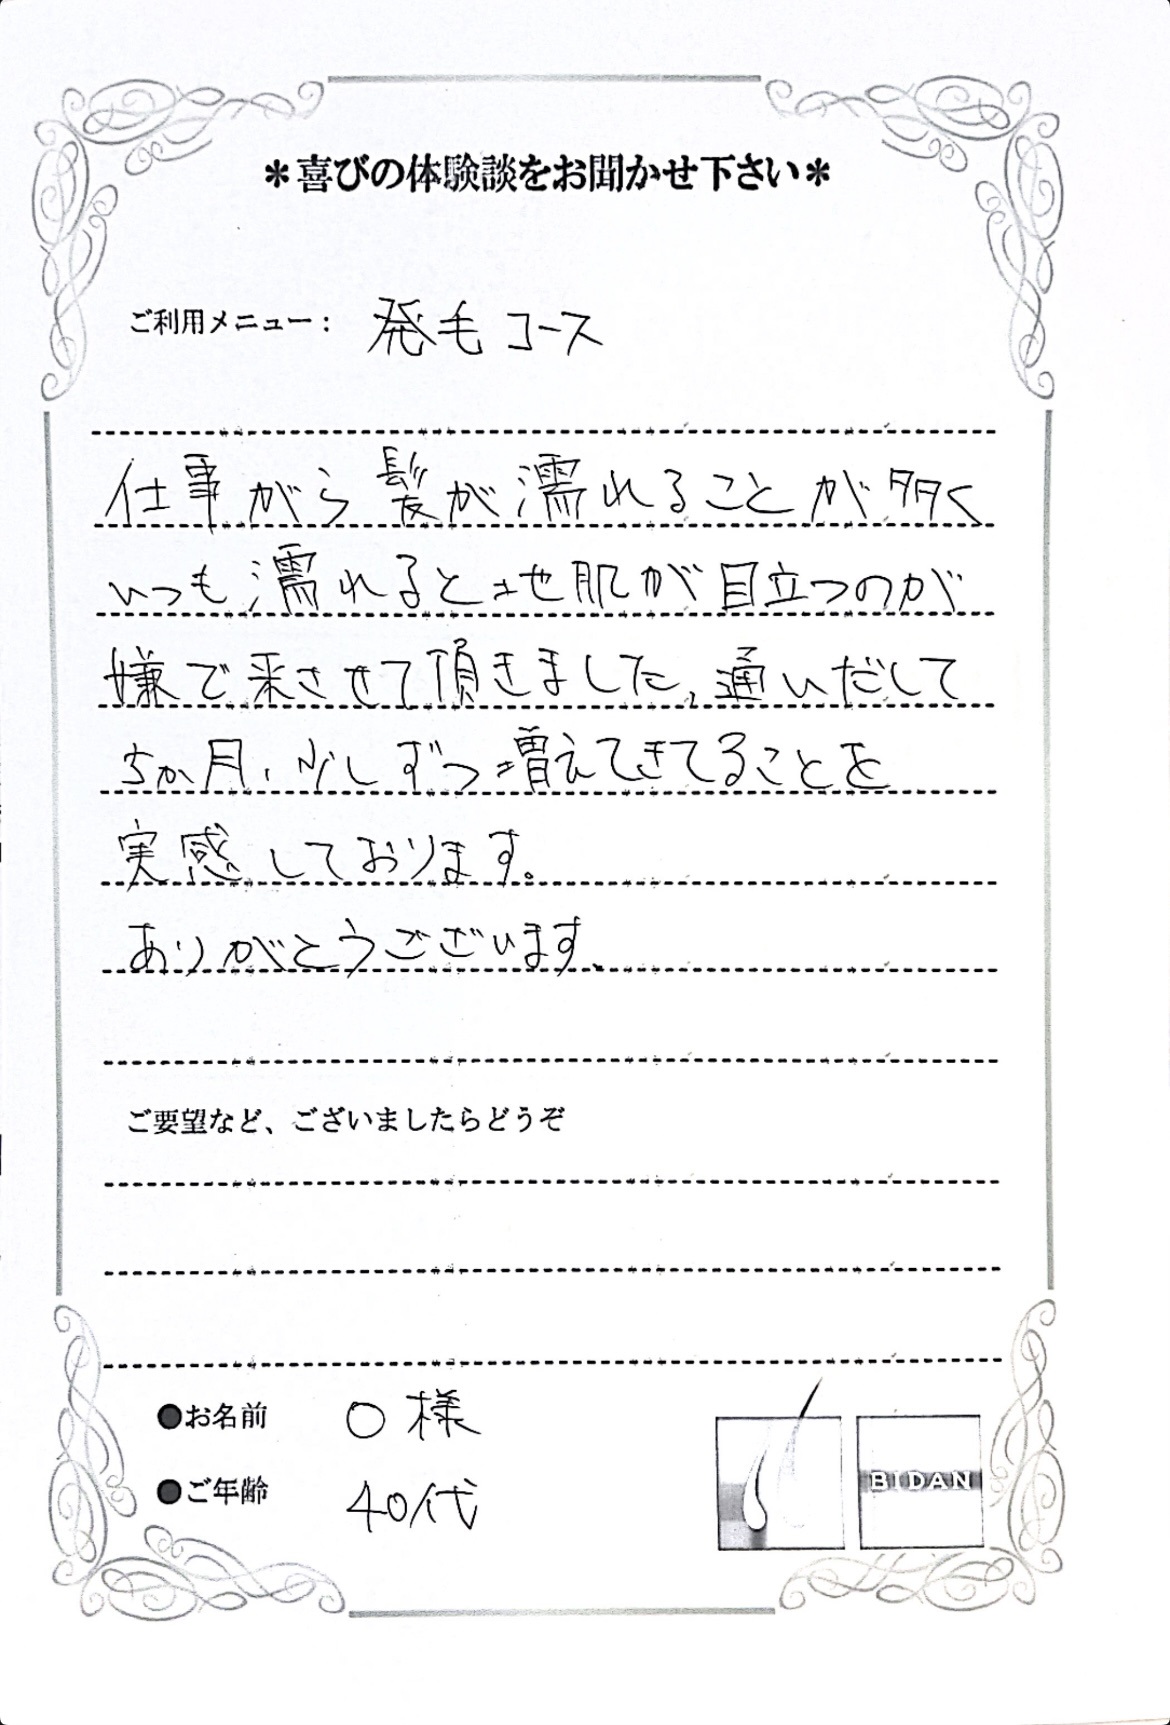 ＊喜びの体験談をお聞かせ下さい＊
ご利用メニュー： 発毛コース
仕事がら髪が濡れることが多く
いつも濡れると地肌が目立つのが
嫌で来させて頂きました、通いだして
5か月、少しずつ増えてきてることを
実感しております。
ありがとうございます、
ご要望など、ございましたらどうぞ
●お名前 O様
●ご年齢 40代
BIDAN